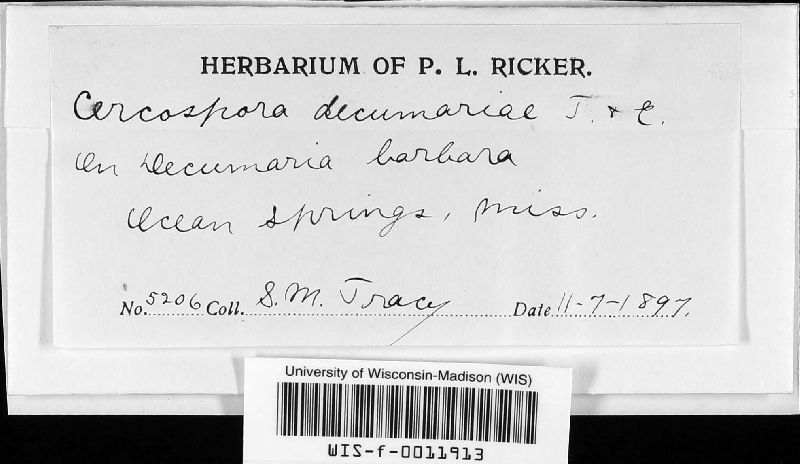 HERBARIUM OF P. L. RICKER.
Cercospora decumariae T. & E.
On Decumaria barbara
Ocean Springs, Miss.
No. 5206 Coll. S. M. Tracy Date 11-7-1897.
University of Wisconsin-Madison (WIS)
WIS-f-0011913